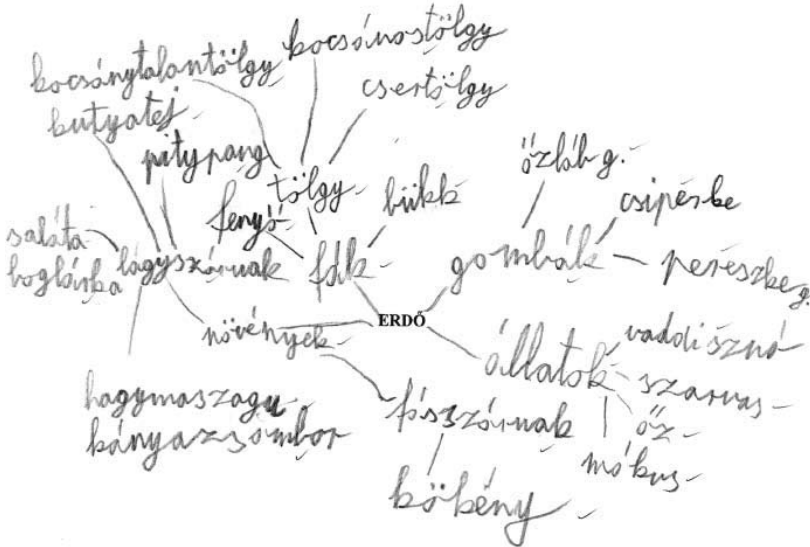 kocsánytalantölgy
kocsánostölgy
csertölgy
kutyatej
pitypang
tölgy
őzláb g.
bükk
fenyő
csipérke
saláta
boglárka
lágyszárúak
fák
gombák
pereszke g.
ERDŐ
növények
állatok
vaddisznó
szarvas
őz
mókus
hagymaszagu
kányazsombor
fásszárúak
kökény